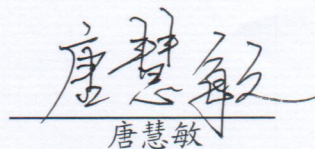 唐慧敏
唐慧敏